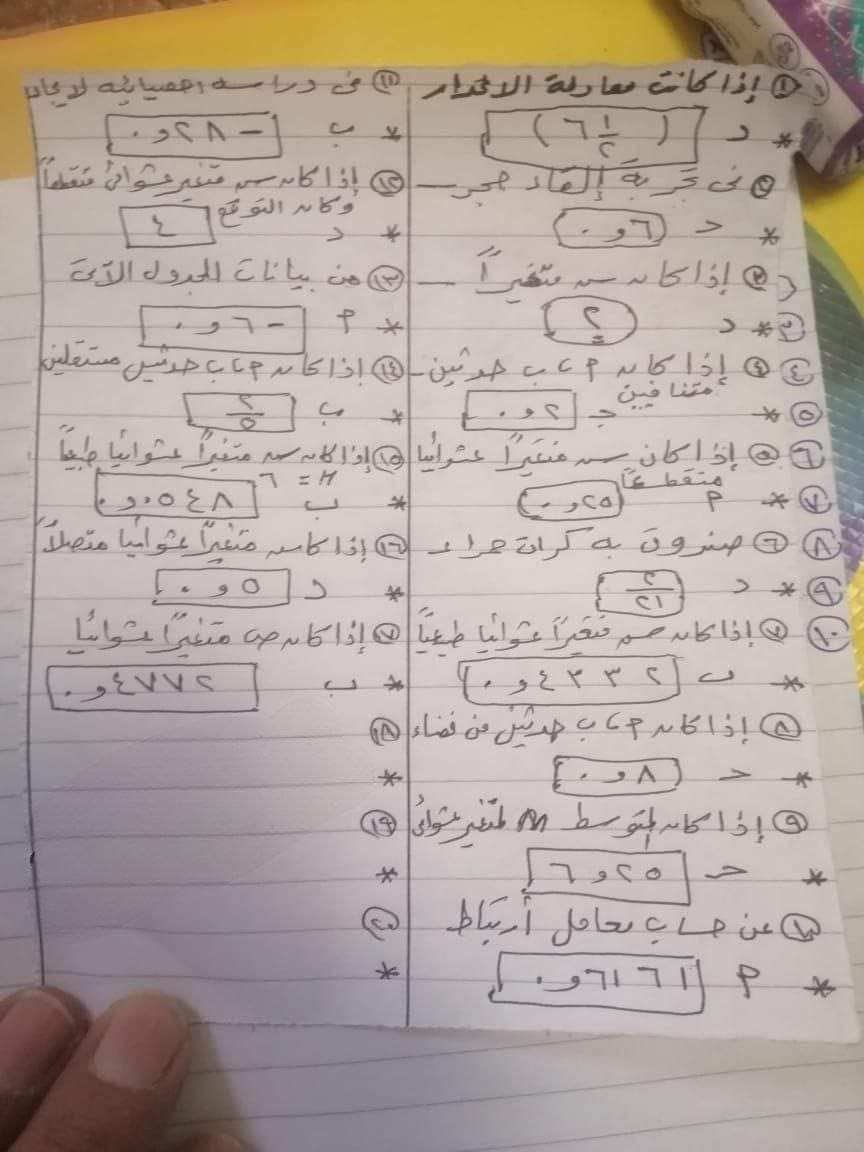 ① إذا كانت معادلة الانحدار
* د ( ١/٢ ٦ )
② فى تجربة إلقاء حجر
* حـ ٦و٠
③ إذا كان س متغيراً
* د ٢
④ إذا كان ٢ ، ب حدثين
متنافيين
* جـ ٢و٠
⑤ إذا كان س متغيراً عشوائيا
متقطعاً
* ٢ ٢٥و٠
⑥ صندوق به كرات حمراء
* د ٢/٢١
⑦ إذا كان ص متغيراً عشوائيا طبيعياً
* ب ٤٣٣٢و٠
⑧ إذا كان ٢ ، ب حدثين من فضاء
* حـ ٨و٠
⑨ إذا كان المتوسط M لمتغير عشوائى
* حـ ٢٥و٦
⑩ عن حساب معامل أرتباط
* ٢ ٦١٦١و٠
⑪ فى دراسه احصيائيه لايجاد
* ب -٢٨و٠
⑫ إذا كان س متغير عشوائى متقطعاً
وكان التوقع
* د ٤
⑬ من بيانات الجدول الآتى
* ٢ -٦و٠
⑭ إذا كان ٢ ، ب حدثين مستقلين
* ب ٢/٥
⑮ إذا كان س متغيراً عشوائيا طبيعياً
M = ٦
* ب ٠٥٤٨و٠
⑯ إذا كان س متغيراً عشوائيا متصلاً
* د ٥و٠
⑰ إذا كان ص متغيراً عشوائيا
* ب ٤٧٧٢و٠
⑱
*
⑲
*
⑳
*